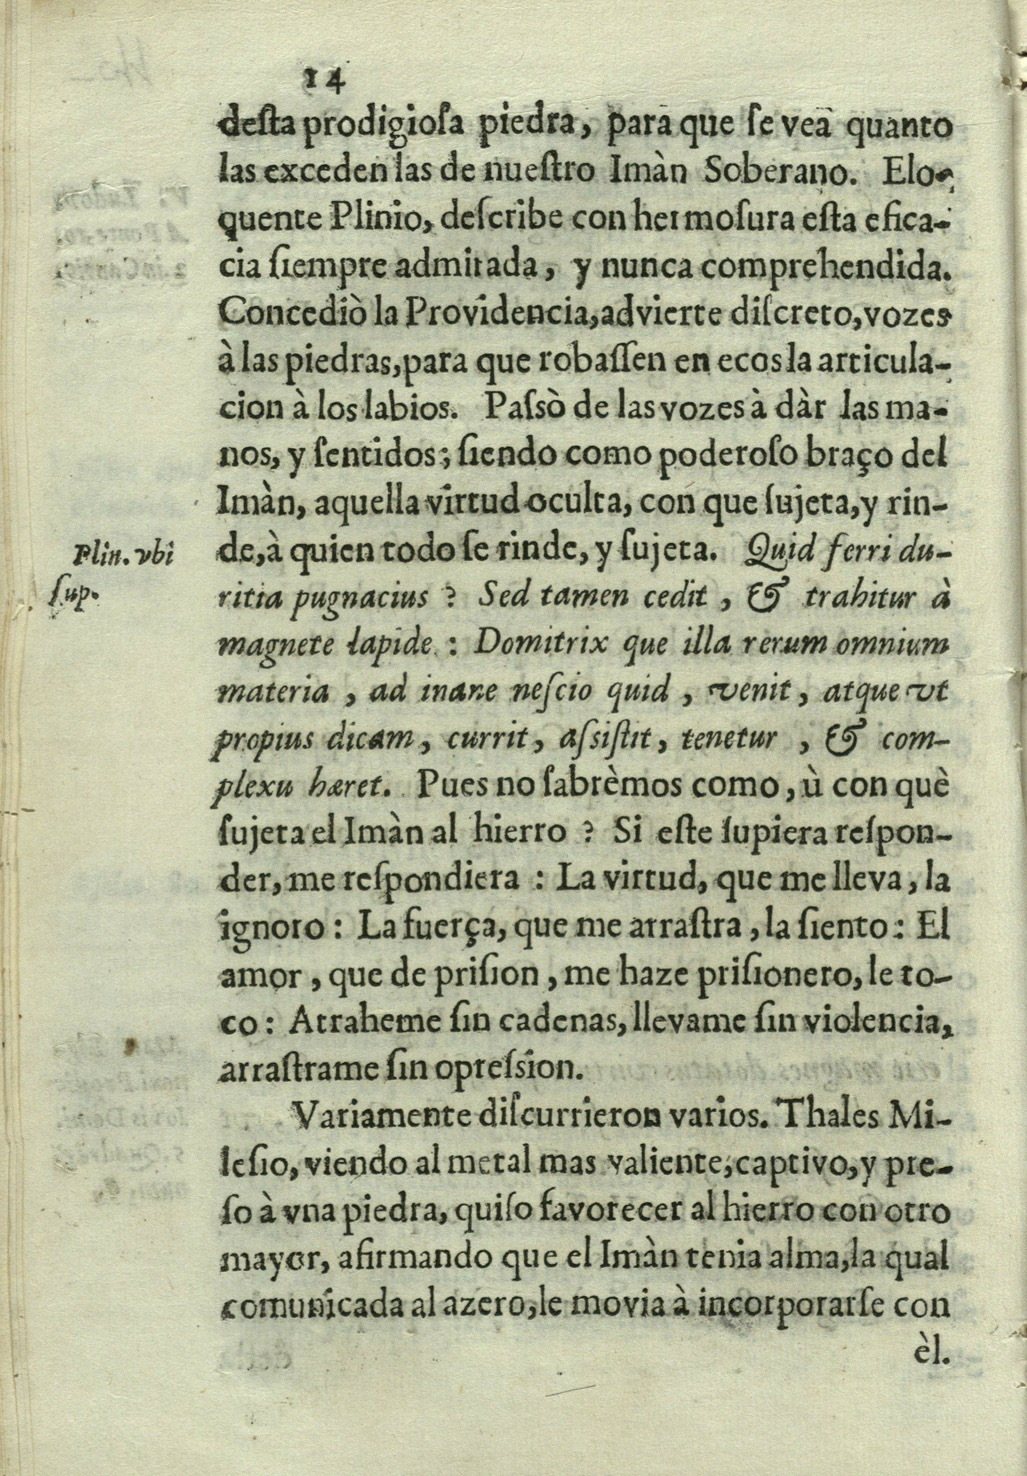 14
desta prodigiosa piedra, para que se vea quanto
las exceden las de nuestro Imàn Soberano. Elo-
quente Plinio, describe con hermosura esta efica-
cia siempre admirada, y nunca comprehendida.
Concediò la Providencia,advierte discreto,vozes
à las piedras,para que robassen en ecos la articula-
cion à los labios. Passò de las vozes à dàr las ma-
nos, y sentidos; siendo como poderoso braço del
Imàn, aquella virtud oculta, con que sujeta,y rin-
Plin. vbi
sup.
de,à quien todo se rinde, y sujeta. Quid ferri du-
ritia pugnacius ? Sed tamen cedit , & trahitur à
magnete lapide : Domitrix que illa rerum omnium
materia , ad inane nescio quid , venit , atque vt
propius dicam, currit, assistit, tenetur , & com-
plexu hæret. Pues no sabrèmos como, ù con què
sujeta el Imàn al hierro ? Si este supiera respon-
der, me respondiera : La virtud, que me lleva, la
ignoro : La fuerça, que me arrastra, la siento : El
amor , que de prision , me haze prisionero, le to-
co : Atraheme sin cadenas, llevame sin violencia,
arrastrame sin opression.
Variamente discurrieron varios. Thales Mi-
lesio, viendo al metal mas valiente, captivo, y pre-
so à vna piedra, quiso favorecer al hierro con otro
mayor, afirmando que el Imàn tenia alma,la qual
comunicada al azero,le movia à incorporarse con
èl.